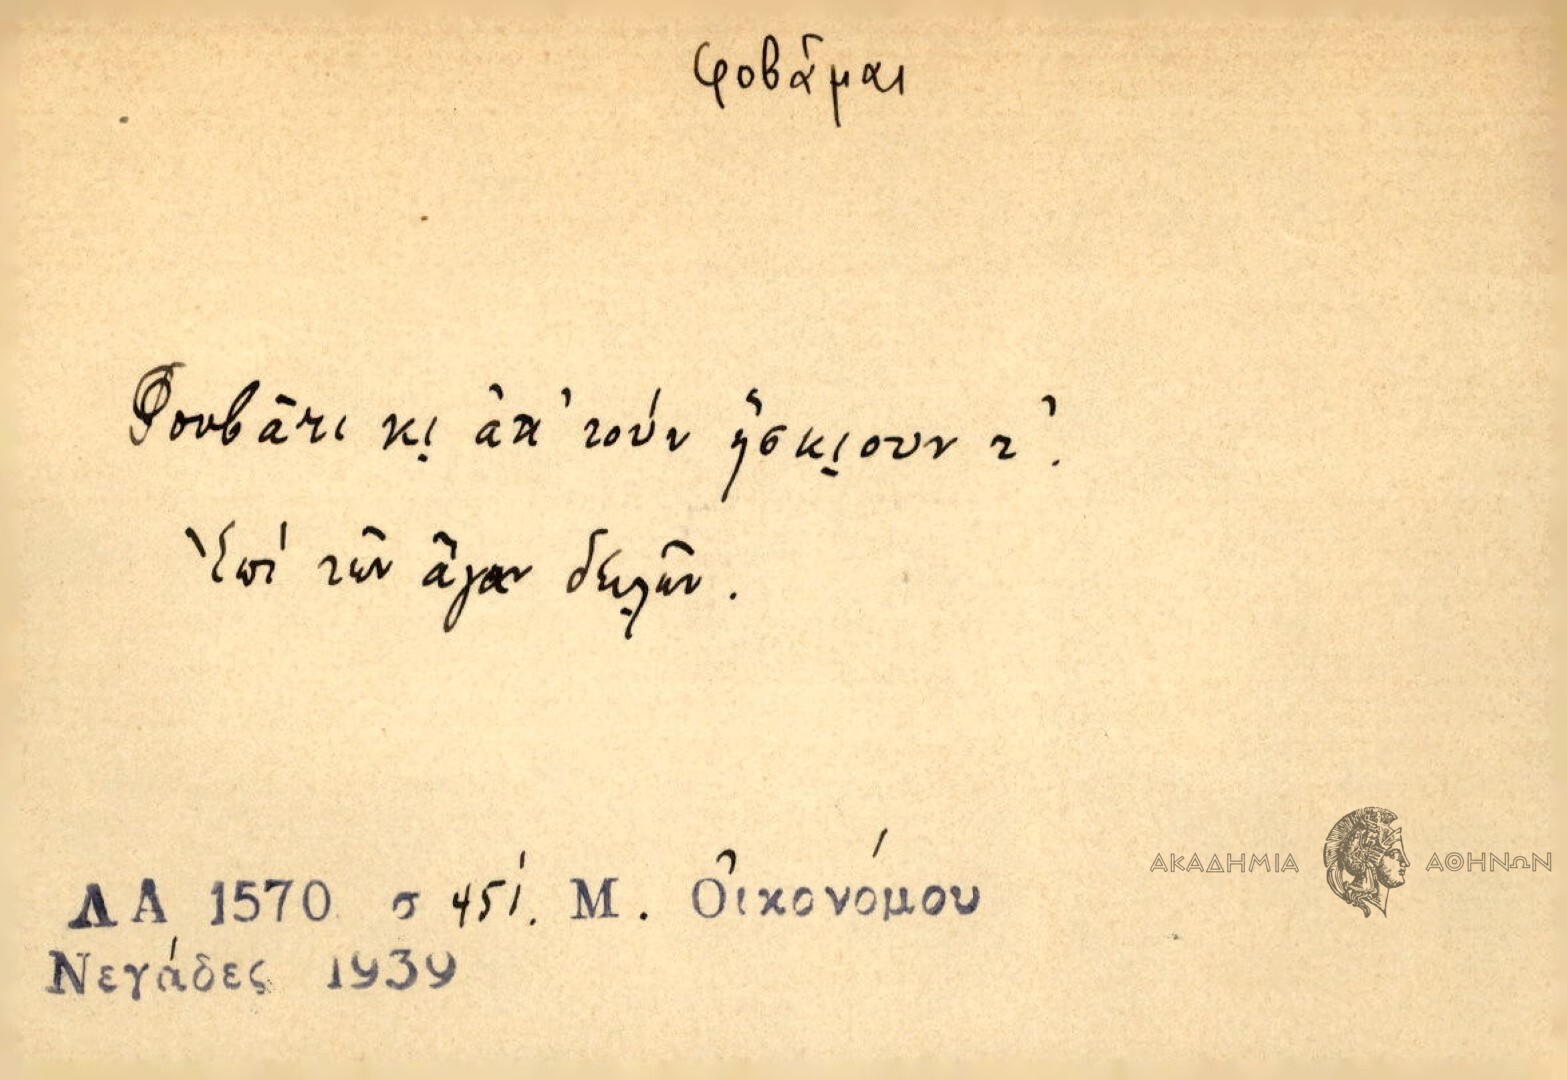 φοβᾶμαι
Φουβᾶτι κι̱ ἀπ' τούν ἥσκι̱ουν τ'.
Ἐπί τῶν ἄγαν δειλῶν.
ΛΑ 1570 σ 451. Μ. Οἰκονόμου
Νεγάδες 1939
ΑΚΑΔΗΜΙΑ ΑΘΗΝΩΝ